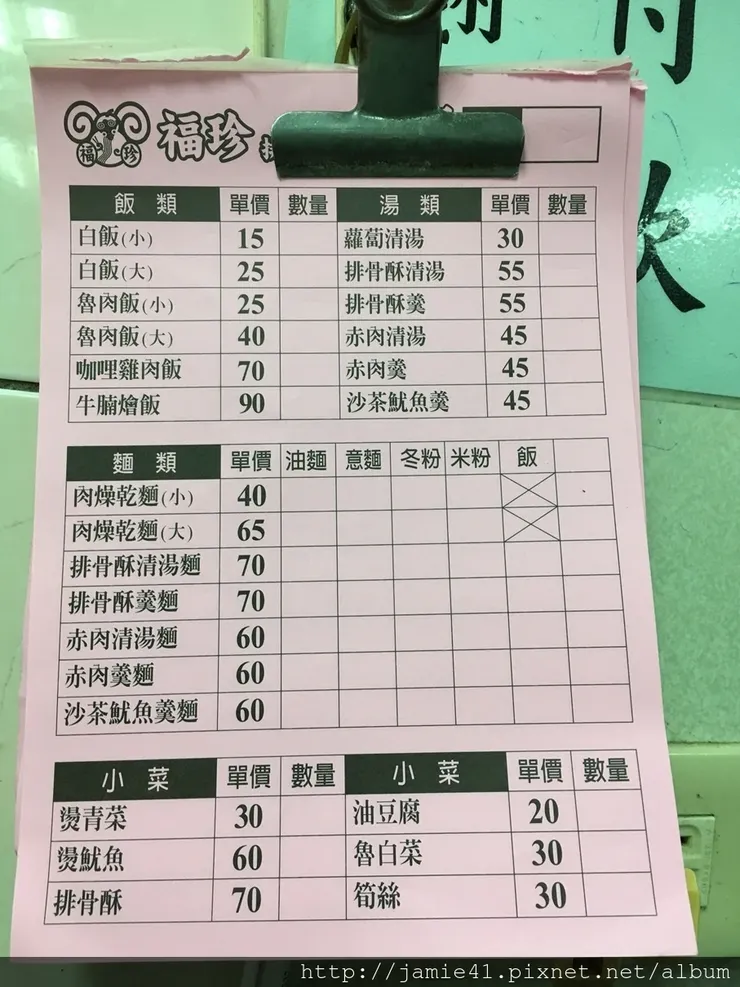 福 珍 福珍
飯類 單價 數量 湯類 單價 數量
白飯(小) 15 蘿蔔清湯 30
白飯(大) 25 排骨酥清湯 55
魯肉飯(小) 25 排骨酥羹 55
魯肉飯(大) 40 赤肉清湯 45
咖哩雞肉飯 70 赤肉羹 45
牛腩燴飯 90 沙茶魷魚羹 45
麵類 單價 油麵 意麵 冬粉 米粉 飯
肉燥乾麵(小) 40
肉燥乾麵(大) 65
排骨酥清湯麵 70
排骨酥羹麵 70
赤肉清湯麵 60
赤肉羹麵 60
沙茶魷魚羹麵 60
小菜 單價 數量 小菜 單價 數量
燙青菜 30 油豆腐 20
燙魷魚 60 魯白菜 30
排骨酥 70 筍絲 30
http://jamie41.pixnet.net/album